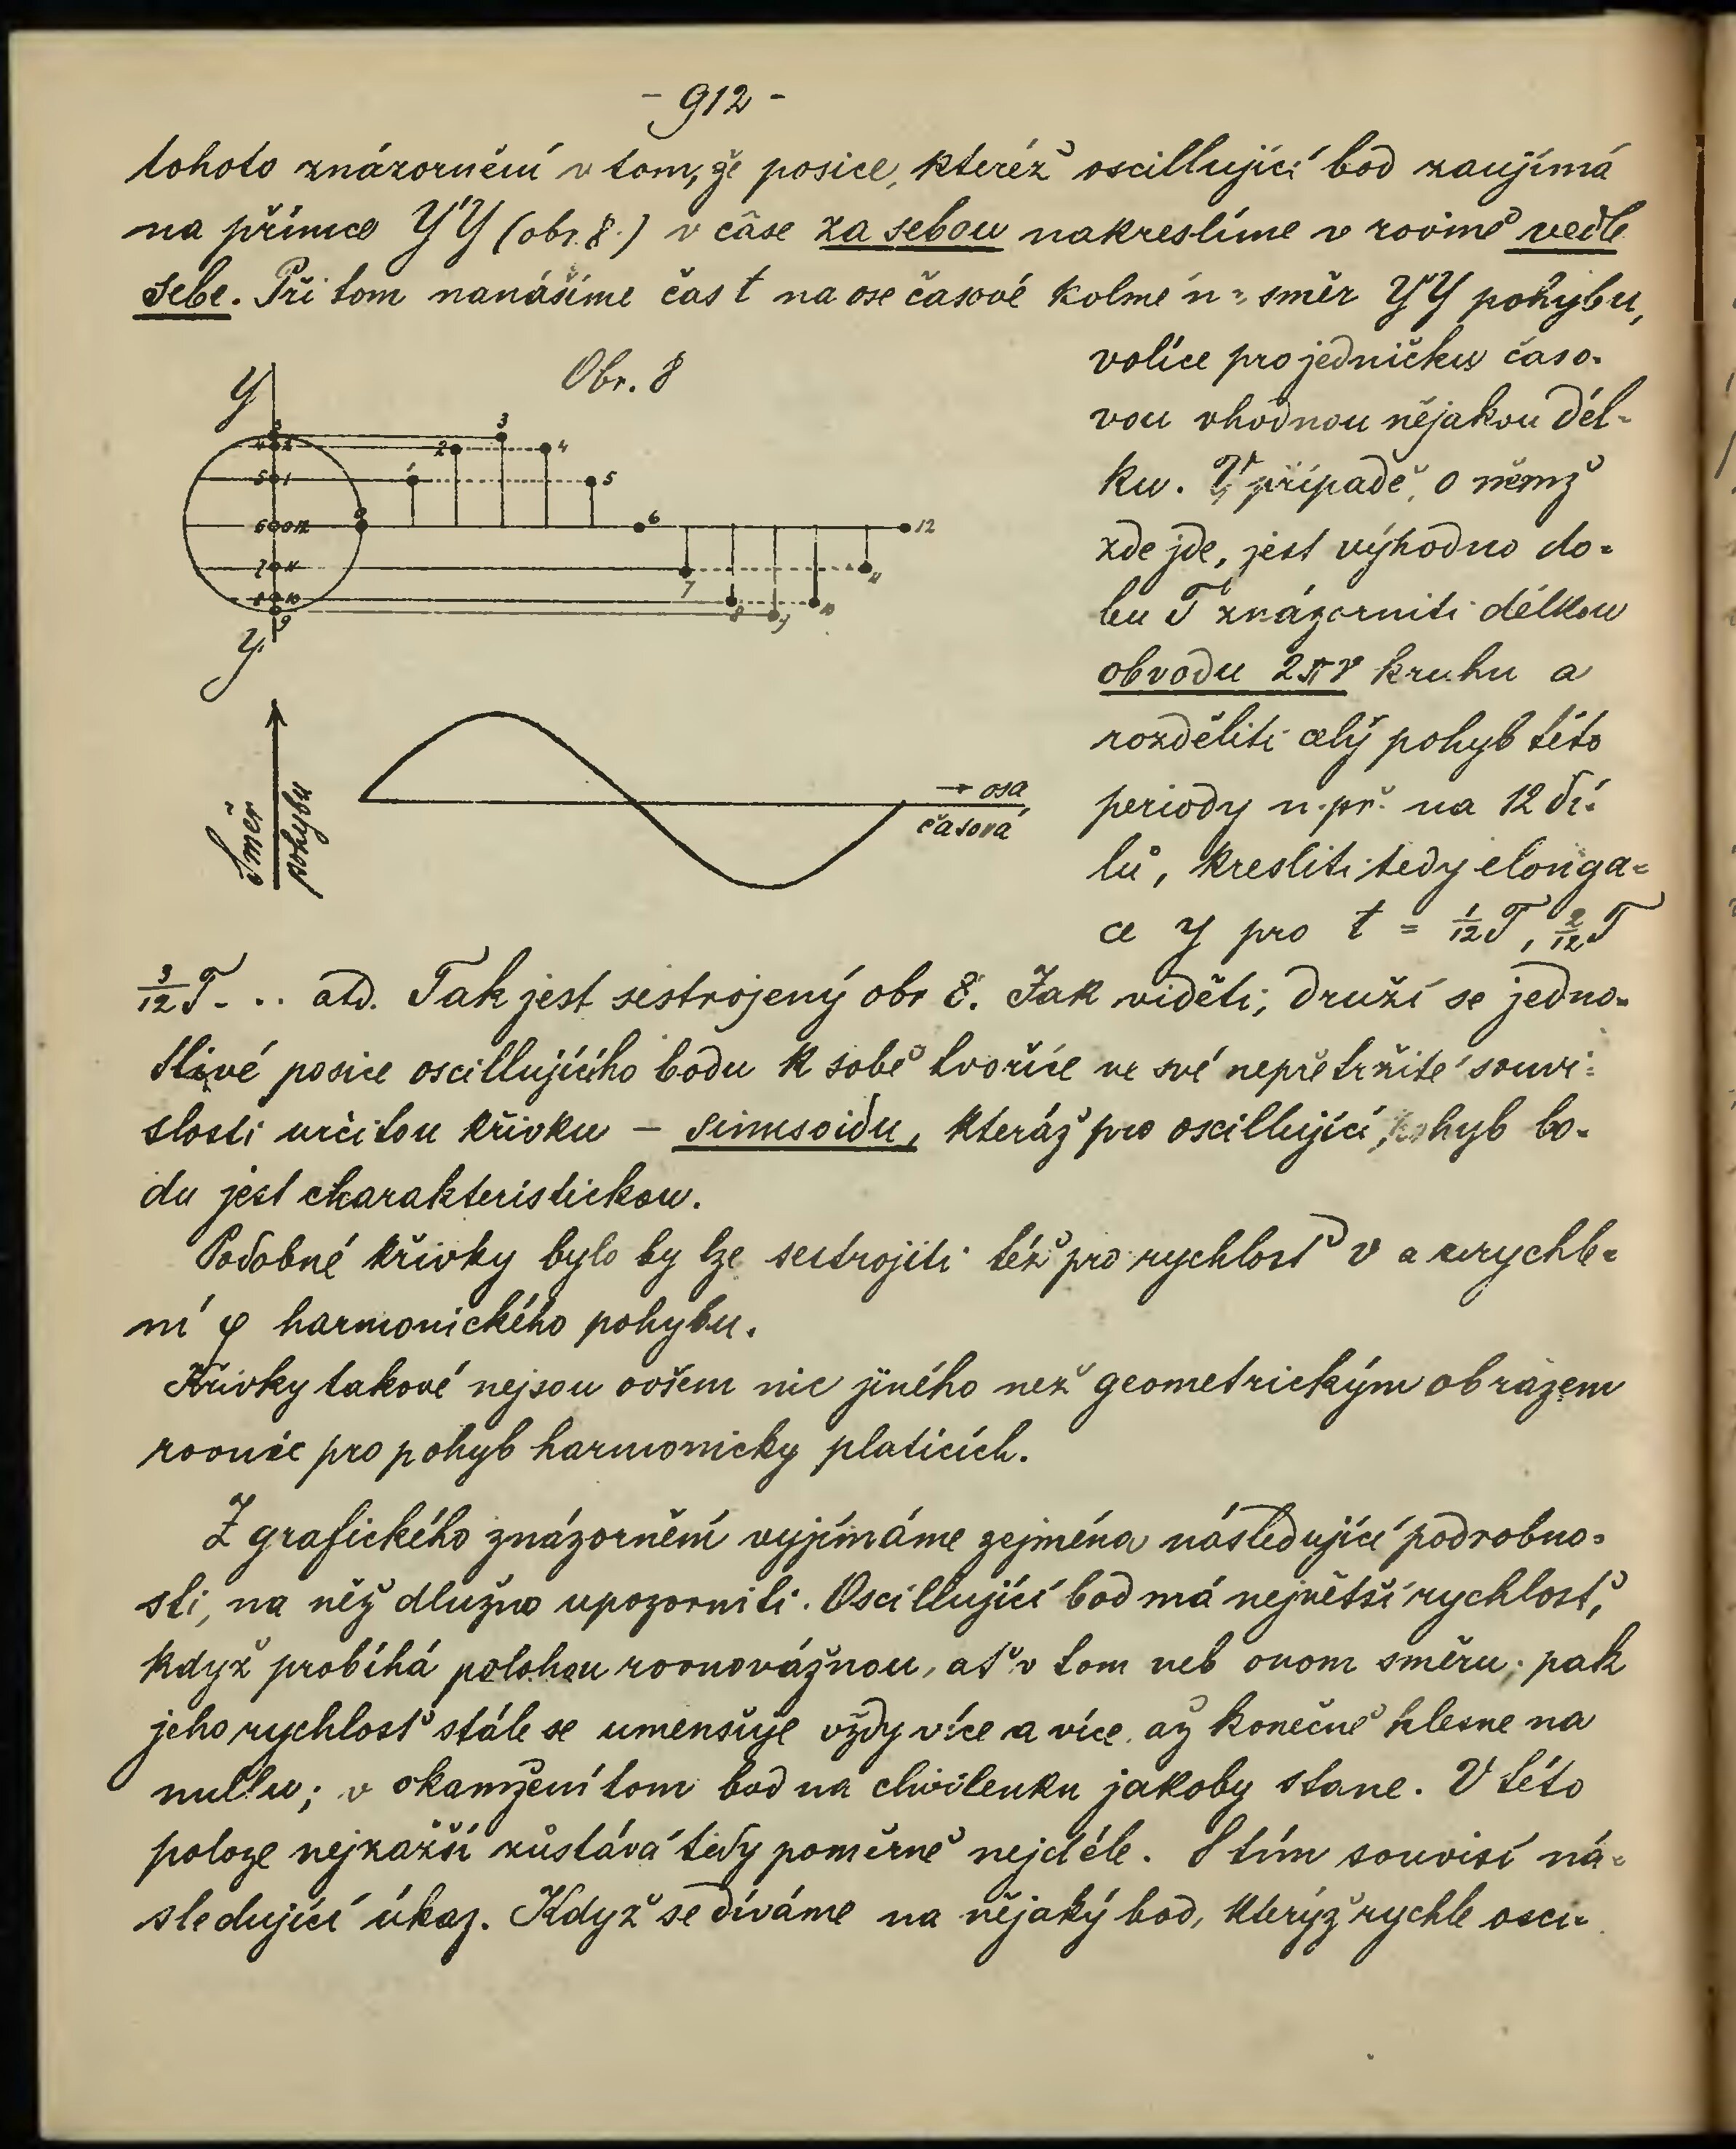 - 912 -
tohoto znázornění v tom, že posice, kteréž oscillující bod zaujímá
na přímce Y'Y (obr. 8.) v čase za sebou nakreslíme v rovině vedle
sebe. Při tom nanášíme čas t na ose časové kolmé n směr Y'Y pohybu,
Obr. 8
Y
3
4 2
5 1
6 0 12
7 11
8 10
9
Y
0
1
2
3
4
5
6
7
8
9
10
11
12
Směr
pohybu
→ osa
časová
volíce pro jedničku časo-
vou vhodnou nějakou dél-
ku. V případě, o němž
zde jde, jest výhodno do-
bu T znázorniti délkou
obvodu 2πr kruhu a
rozděliti celý pohyb této
periody n. př. na 12 dí-
lů, kresliti tedy elonga-
ce y pro t = 1/12 T, 2/12 T
3/12 T . . . atd. Tak jest sestrojený obr 8. Jak viděti, druží se jedno-
tlivé posice oscillujícího bodu k sobě tvoříce ve své nepřetržité souvi-
slosti určitou křivku – sinusoidu, kteráž pro oscillující pohyb bo-
du jest charakteristickou.
Podobné křivky bylo by lze sestrojiti též pro rychlosť v a urychle-
ní φ harmonického pohybu.
Křivky takové nejsou ovšem nic jiného než geometrickým obrazem
rovnic pro pohyb harmonický platících.
Z grafického znázornění vyjímáme zejména následující podrobno-
sti, na něž dlužno upozorniti. Oscillující bod má největší rychlosť,
když probíhá polohou rovnovážnou, ať v tom neb onom směru; pak
jeho rychlosť stále se umenšuje vždy více a více, až konečně klesne na
nullu; v okamžení tom bod na chvilenku jakoby stane. V této
poloze nejzažší zůstává tedy poměrně nejdéle. S tím souvisí ná-
sledující úkaz. Když se díváme na nějaký bod, kterýž rychle osci-